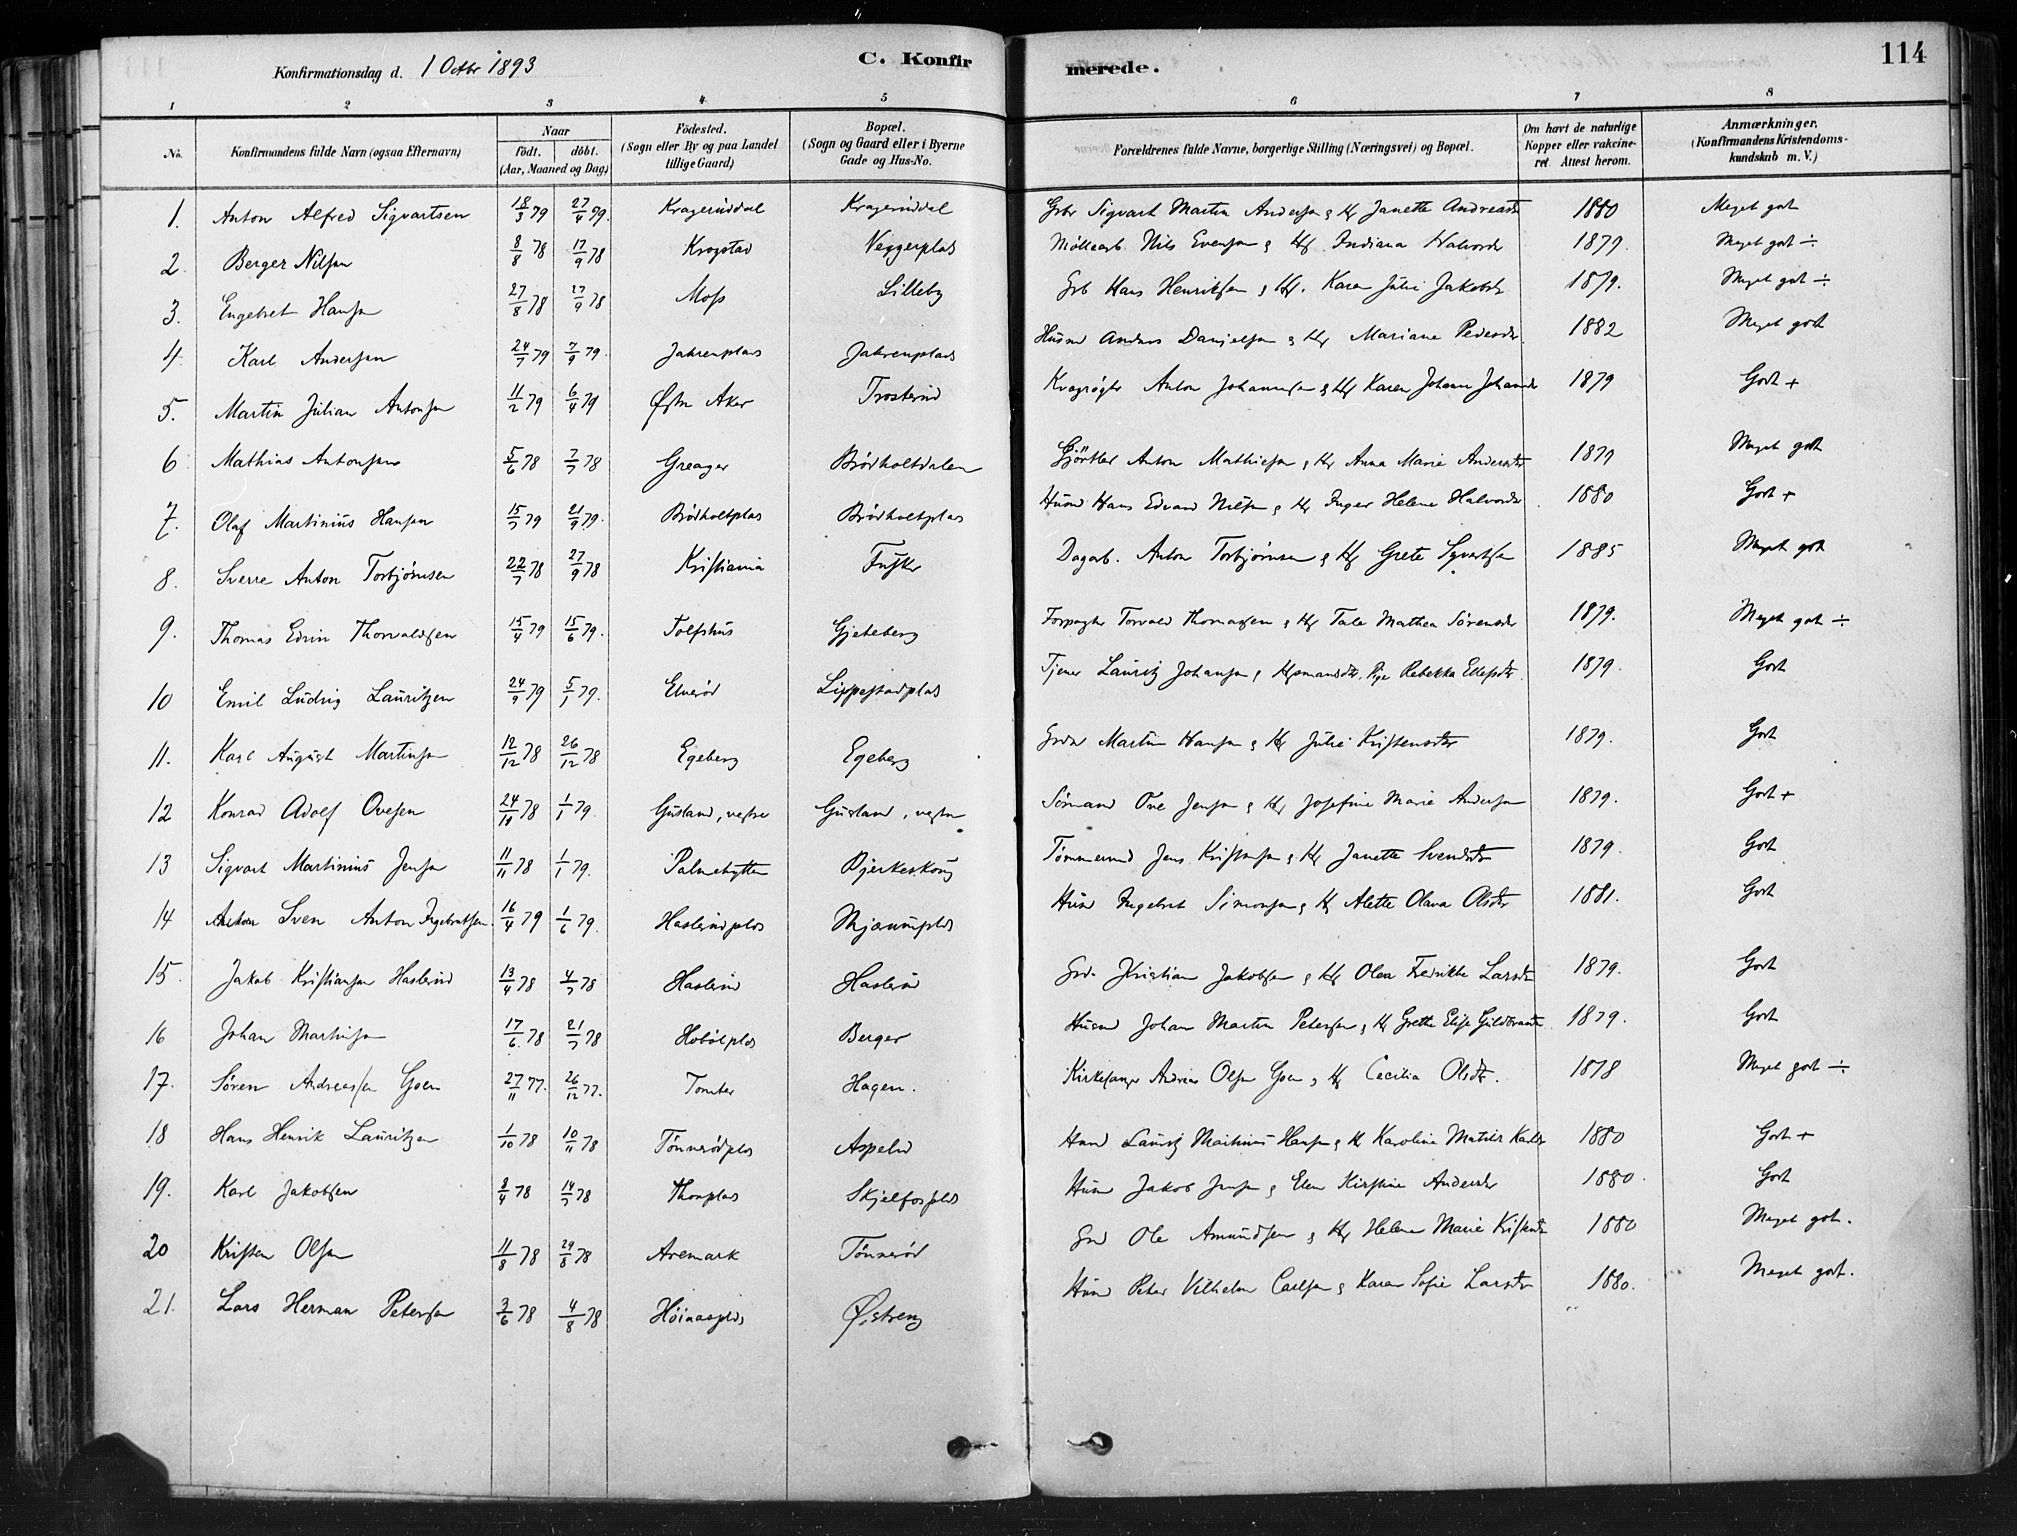 114
Konfirmationsdag d. 1 Octbr 1893
C. Konfirmerede.
1 2 3 4 5 6 7 8
No.
Konfirmandens fulde Navn (ogsaa Efternavn)
Naar
födt. döbt.
(Aar, Maaned og Dag)
Födested.
(Sogn eller By og paa Landet
tillige Gaard)
Bopæl.
(Sogn og Gaard eller i Byerne
Gade og Hus-No.
Forældrenes fulde Navne, borgerlige Stilling (Næringsvei) og Bopæl.
Om havt de naturlige
Kopper eller vakcine-
ret. Attest herom.
Anmærkninger.
(Konfirmandens Kristendoms-
kundskab m. V.)
1. Anton Alfred Sigvartsen 18/3 79 27/4 79. Kragerüddal Kragerüddal Sigvart Martin Andersen & Janette Andreasdtr 1880 Meget godt
2 Berger Nilsen 8/8 78 17/9 78 Krogstad Veggerplads Nils Evensen & Indiana Halvordr 1879. Meget godt ÷
3. Engebret Hansen 27/8 78 27/9 78 Moss Lilleby Hans Henriksen & Karen Julie Jakobsdr 1879. Meget godt ÷
4. Karl Andersen 24/7 79 7/9 79. Jahrenplads Jahrenplads Husmd Anders Danielsen & Mariane Pedersdr 1882 Meget godt
5. Martin Julian Antonsen 11/2 79 6/4 79 Østre Aker Trosterud Anton Johannesen & Karen 1879 Godt +
6 Mathias Antonsen 5/6 78 7/7 78 Greager Brödholtdalen Gjörtler Anton Mathiesen & Anna Marie Andersdtr 1879 Meget godt
7. Olaf Martinius Hansen 15/7 79 21/9 79. Brödholtplads Brödholtplads Husmd Hans Edvard Nilsen & Inger Helene Halvorsdr 1880 Godt +
8. Sverre Anton Torbjørnsen 22/7 78 27/9 78 Kristiania Fusker Dagarb. Anton Torbjørnsen & Grete 1885 Meget godt
9. Thomas Edvin Thorvaldsen 15/4 79 15/6 79. Tolfshus Gjeteberg Forpagter Torvald Thomassen & Tale Mathea Sørensdr 1879. Meget godt ÷
10 Emil Ludvig Lauritzen 24/9 79 Elverød Lippestadplads Tjener Lauritz Johansen & Pige Rebekka 1879. Godt
11. Karl August Martinsen 12/12 78 26/12 78 Egeberg Egeberg Martin Hansen & Julie Kristensdtr 1879. Godt
12 Konrad Adolf Ovesen 24/11 78 1/1 79. Gusland, vestre Gusland, vestre Ove Jensen & Josefine Marie Andersen 1879. Godt +
13 Sigvart Martinius Jensen 11/11 78 1/1 79. Palmehytten Bjerkeskoug Tømmermd Jens Kristensen & Janette Svendsdtr 1879. Godt
14 Sven Anton Ingebretsen. 16/4 79 1/6 79. Haslerudplds Mjærumplds Husmd Ingebret Simonsen & Alette Olava Olsdtr 1881. Godt
15. Jakob Kristiansen Haslerud 13/4 78 4/7 78 Haslerud Haslerud Kristian Jakobsen & Olea Fredrikke Larsdtr 1879. Godt
16 Johan Martinsen 17/6 78 21/7 78 Hobölplds Berger Husmd Johan Martin Petersen & Grethe Elise 1879. Godt
17. Søren Andreassen Goen 27/11 77. 26/12 77. Tomter Hagen. Kirkesanger Andreas Olsen Goen & Cecilia Olsdtr. 1878 Meget godt ÷
18 Hans Henrik Lauritzen 1/10 78 10/11 78 Tønnerødplds Aspelid Lauritz Martinius Hansen & Karoline 1880 Godt +
19. Karl Jakobsen 8/4 78 14/7 78 Thonplads Skjelfosplds Husmd Jakob Jensen & Elen Kirstine Andersdr 1880. Godt
20 Kristen Olsen 11/8 78 29/8 78 Aremark Tønnerød Ole Amundsen & Helene Marie 1880 Meget godt.
21. Lars Herman Petersen 3/6 78 4/8 78 Höiaasplds Østreng Husmd Peter Vilhelm Carlsen & Karen Sofie Larsdtr 1880. Meget godt.